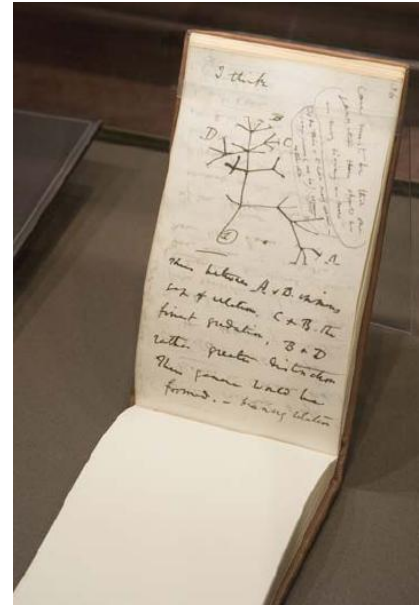 36
I think
Case must be that one
generation then should be
as many living as now
To do this & to have many species
in same genus (as is)
requires extinction
B
D
C
A
1
Thus between A & B. immens
gap of relation. C & B. the
finest gradation, B & D
rather greater distinction
Thus genera would be
formed. — bearing relation